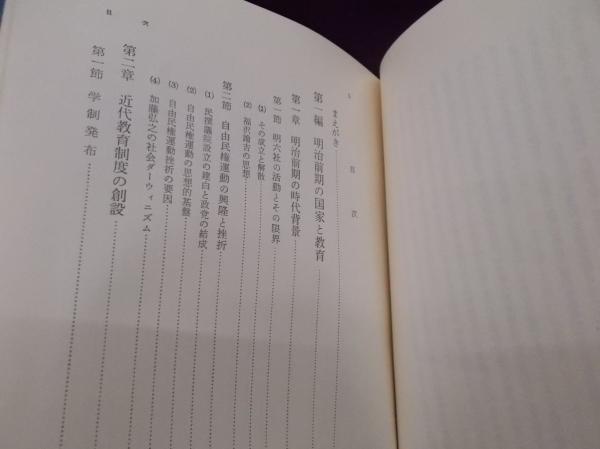 目次
目次
まえがき
第一編 明治前期の国家と教育
第一章 明治前期の時代背景
第一節 明六社の活動とその限界
(1) その成立と解散
(2) 福沢諭吉の思想
第二節 自由民権運動の興隆と挫折
(1) 民撰議院設立の建白と政党の結成
(2) 自由民権運動の思想的基盤
(3) 自由民権運動挫折の要因
(4) 加藤弘之の社会ダーウィニズム
第二章 近代教育制度の創設
第一節 学制発布